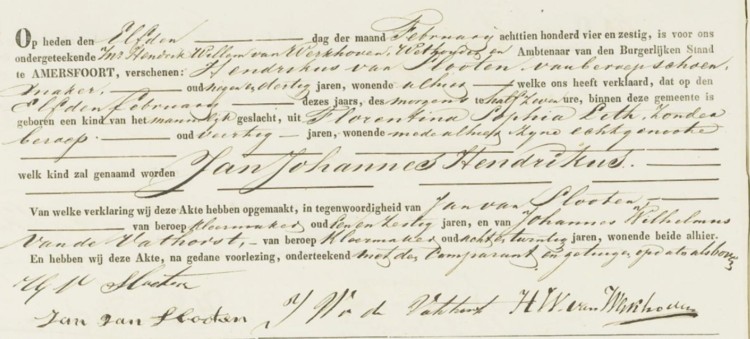 Op heden den Elfden dag der maand February achttien honderd vier en zestig, is voor ons
ondergeteekende Hendrik Willem van Werkhoven, Wethouder en Ambtenaar van den Burgerlijken Stand
te AMERSFOORT, verschenen: Hendrikus van Slooten van beroep schoen
maker, oud negen dertig jaren, wonende alhier welke ons heeft verklaard, dat op den
Elfden February dezes jaars, des morgens te half zeven ure, binnen deze gemeente is
geboren een kind van het mannelijk geslacht, uit Florentina Sophia zonder
beroep oud veertig jaren, wonende mede alhier zyne echtgenoote
welk kind zal genaamd worden Jan Johannes Hendrikus.
Van welke verklaring wij deze Akte hebben opgemaakt, in tegenwoordigheid van Jan van Slooten,
van beroep kleermaker oud een en zestig jaren, en van Johannes Wilhelmus
van de Vathorst, van beroep kleermaker oud acht en twintig jaren, wonende beide alhier.
En hebben wij deze Akte, na gedane voorlezing, onderteekend met den Comparant en getuigen
H V Slooten
Jan van Slooten J W v d Vathorst H.W. van Werkhoven